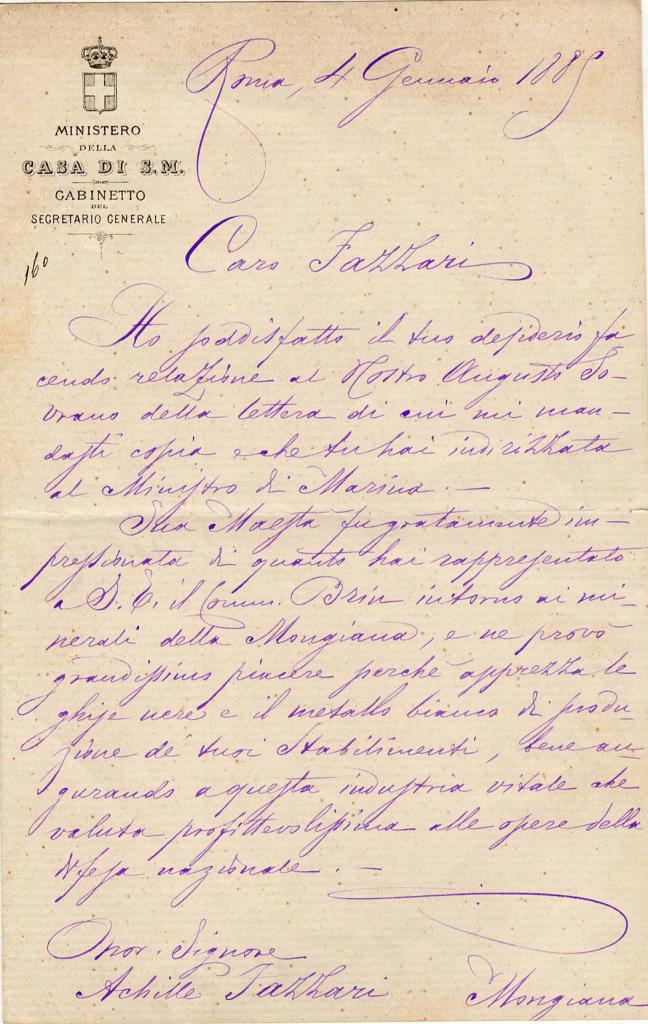 MINISTERO
DELLA
CASA DI S.M.
GABINETTO
DEL
SEGRETARIO GENERALE
16º
Roma, 4 Gennaio 1885
Caro Fazzari
Ho soddisfatto il tuo desiderio fa
cendo relazione al Nostro Augusto So-
vrano della lettera di cui mi man-
dasti copia e che tu hai indirizzata
al Ministro di Marina. —
Sua Maestà fu gratamente im-
pressionata di quanto hai rappresentato
a S. E. il Comm. Brin intorno ai mi-
nerali della Mongiana, e ne provò
grandissimo piacere perché apprezza le
ghise nere e il metallo bianco di produ-
zione de' tuoi Stabilimenti, bene au-
gurando a questa industria vitale che
valuta profittevolissima alle opere della
difesa nazionale. —
Onor. Signore
Achille Fazzari
Mongiana